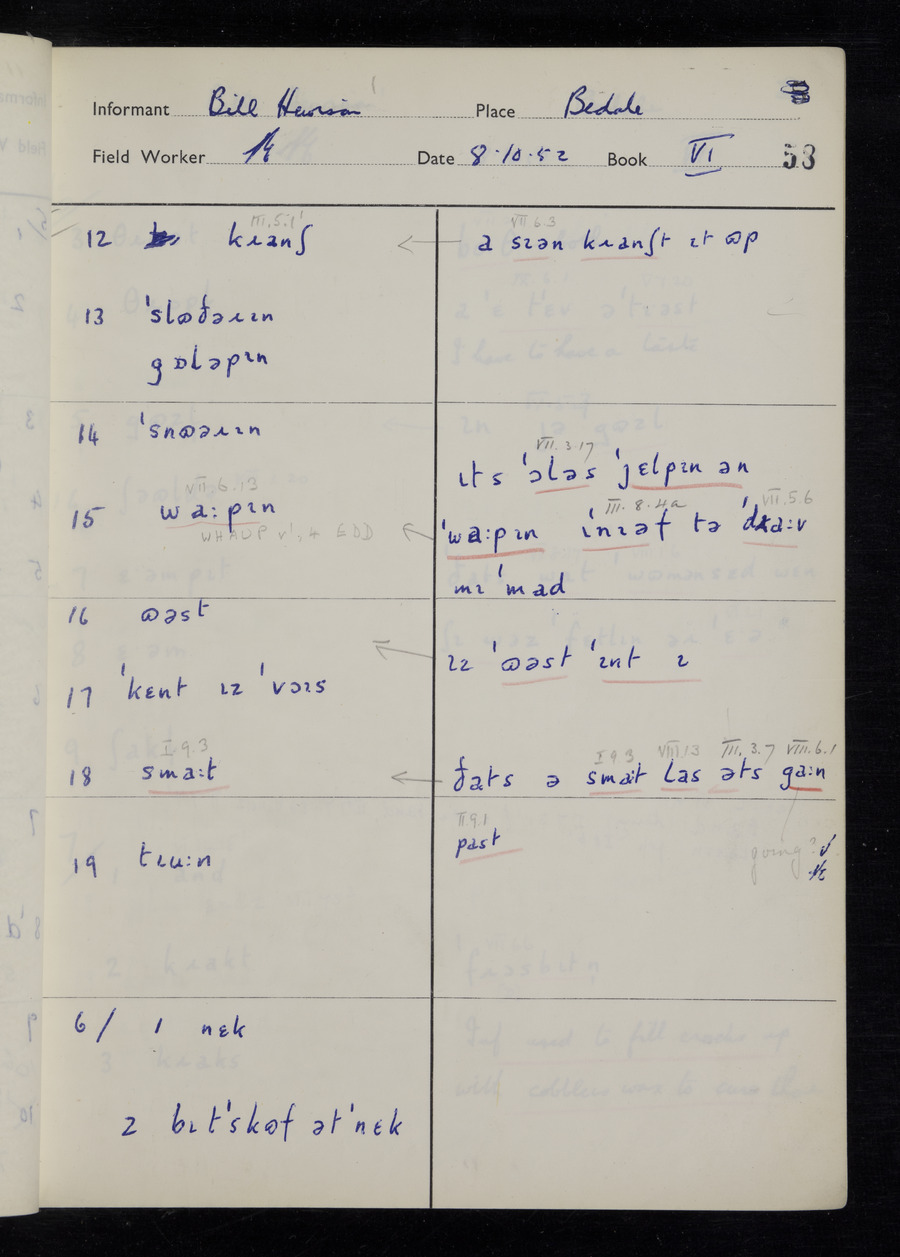 Informant Bill Place Bedale
Field Worker Date 8·10·52 Book VI 53
III.5.1 VII 6.3
12 kɹanʃ ← a sɪən kɹanʃt ɪt ɷp
13 'slɷðəɹɪn
gɒləpɪn
14 'snɷəɹɪn
VII.3.17
ɪts 'ɔləs 'jɛlpɪn ən
VII.6.13 III.8.4a VII.5.6
15 wa:pɪn ← 'wa:pɪn ɪ'nɪəf tə 'dɹa:v
WHAUP v', 4 EDD
mɪ 'mad
16 ɷəst
← ɪz 'ɷəst 'ɪnt ɪ
17 'kɛnt ɪz 'vɔɪs
I.9.3 I 9.3 VIII 13 III. 3.7 VIII.6.1
18 sma:t ← ðats ə sma:t las əts ga:n
II.9.1
past
going? √
19 tɹu:n
6/ 1 nɛk
2 bɪt'skɷf ət'nɛk